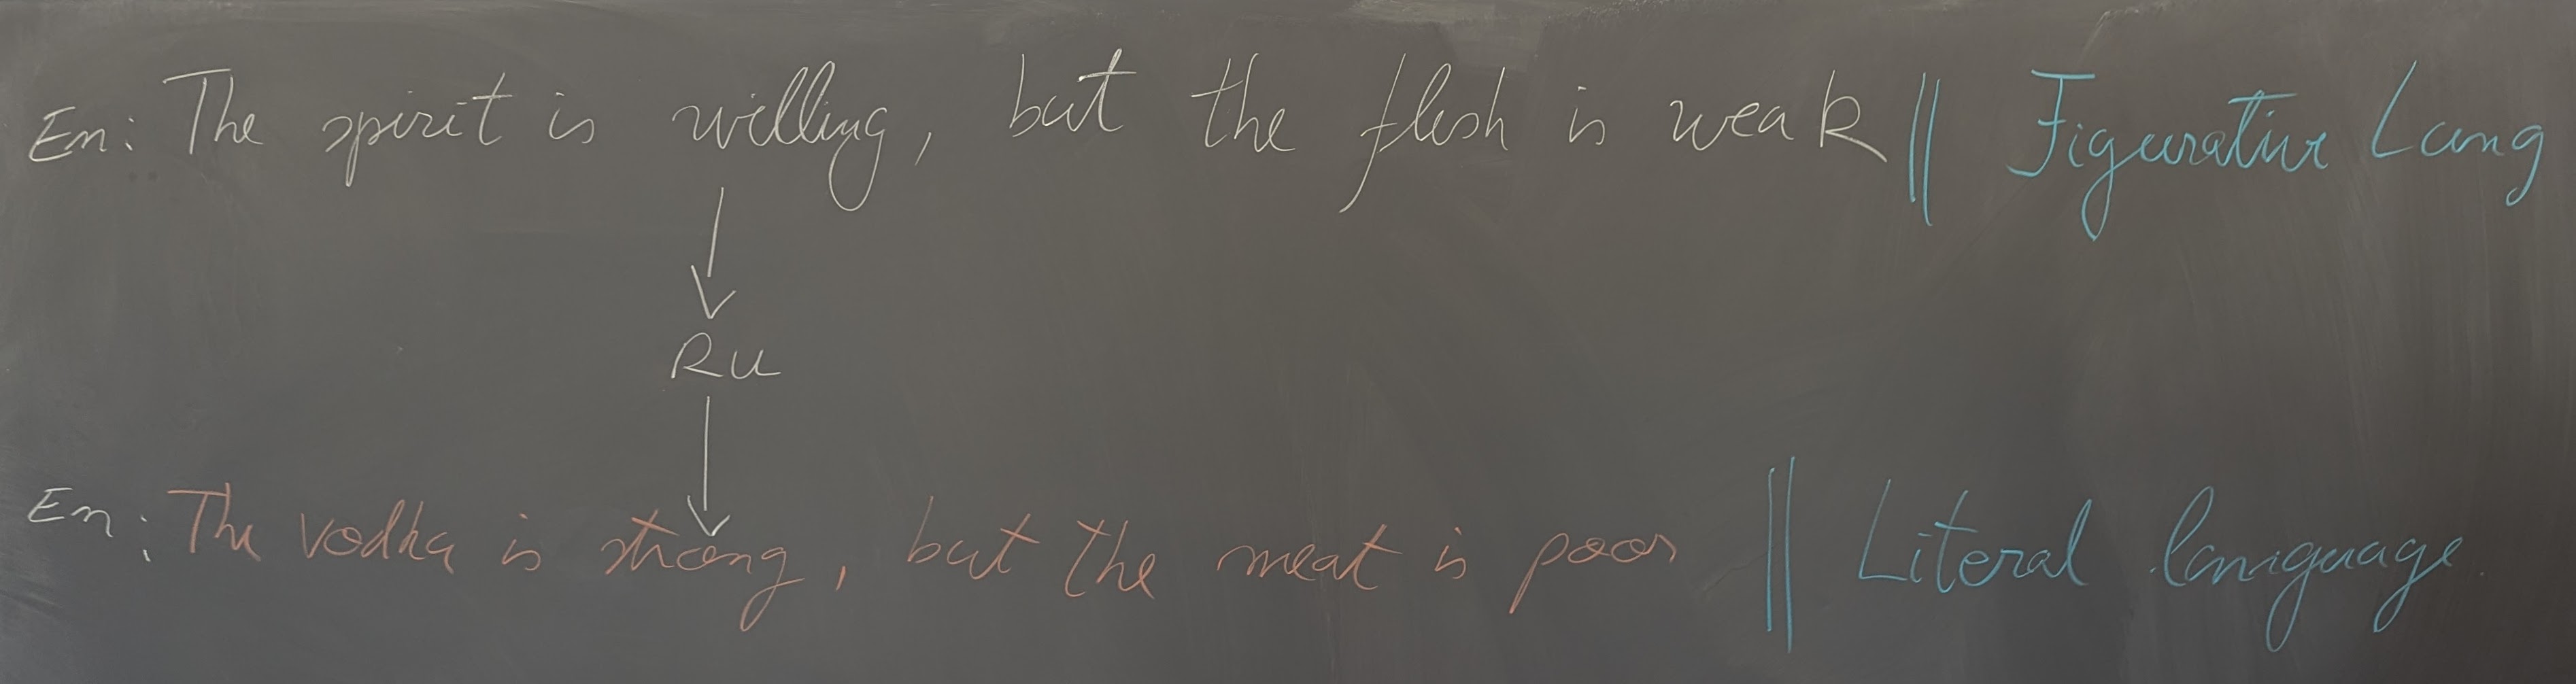 En: The spirit is willing, but the flesh is weak || Figurative Lang
RU
En: The vodka is strong, but the meat is poor || Literal language